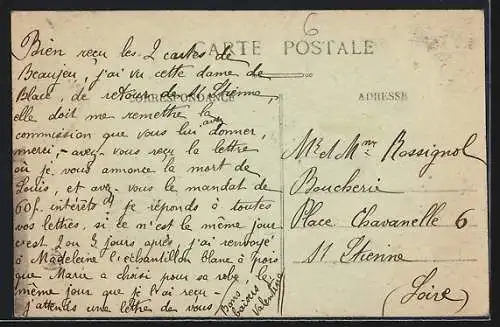 6
CARTE POSTALE
CORRESPONDANCE
ADRESSE
Bien reçu les 2 cartes de
Beaujeu, j'ai vu cette dame de
Blacé, de retour de St Etienne,
elle doit me remettre la
commission que vous lui avez donner,
merci, - avez-vous reçu la lettre
où je vous annonce la mort de
Louis, et avez-vous le mandat de
60f. intérêts je réponds à toutes
vos lettres, si ce n'est le même jour
c'est 2 ou 3 jours après, j'ai renvoyé
à Madeleine l'échantillon blanc à pois
que Marie a choisi pour sa robe, le
même jour que je l'ai reçu -
j'attends une lettre de vous
Bons
baisers
Valentine
Mr et Mme Rossignol
Boucherie
Place Chavanelle 6
St Etienne
(Loire)